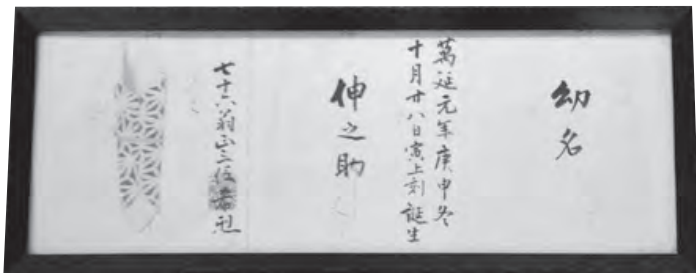 幼名
萬延元年庚申冬
十月廿八日寅上刻誕生
伸之助
七十六翁正三位